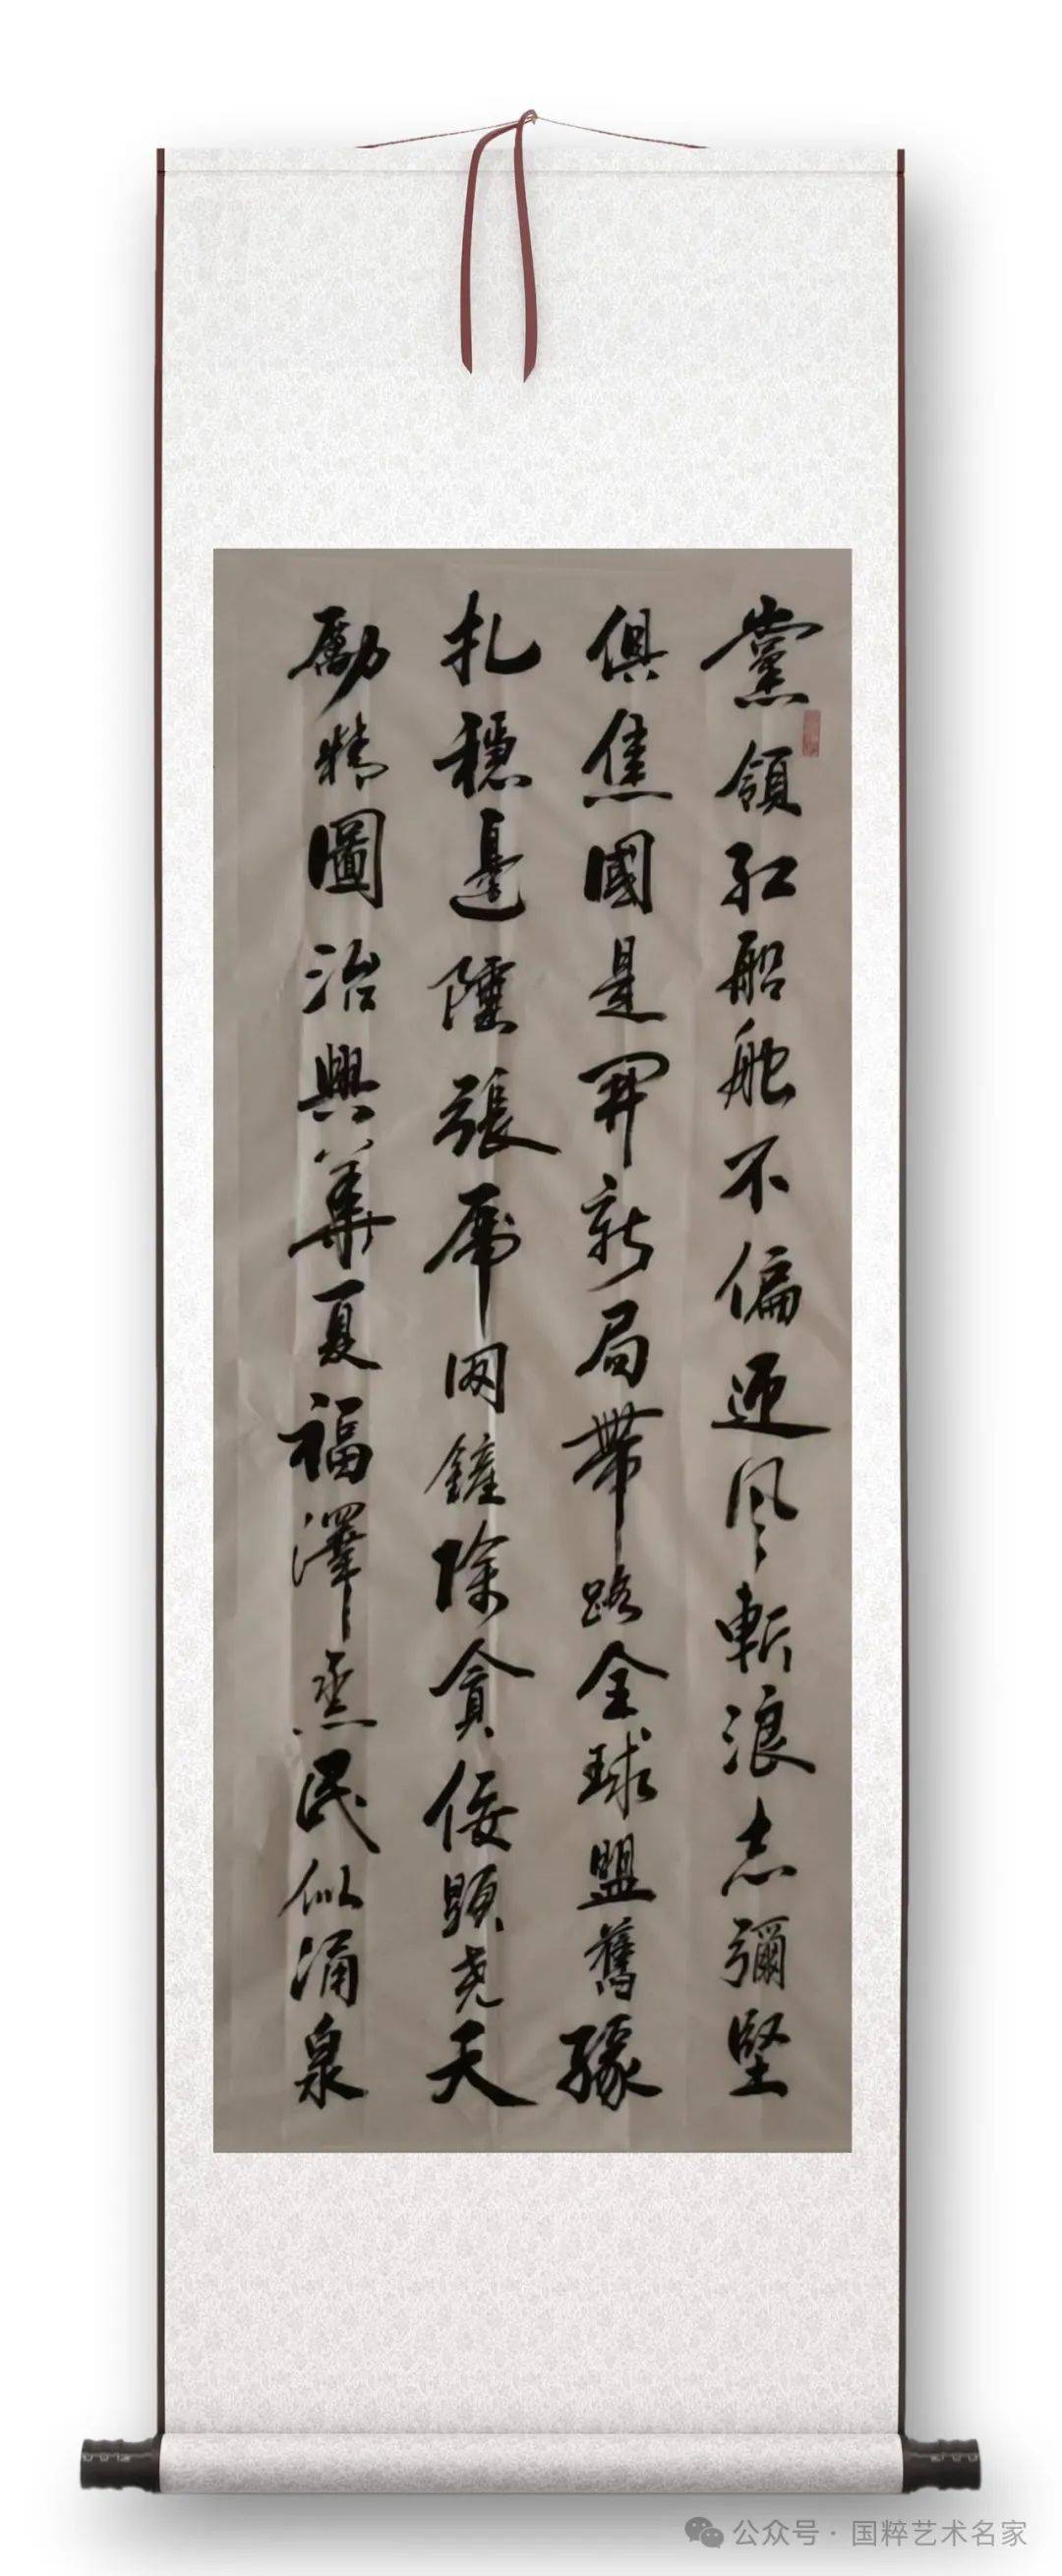 黨領紅船舵不偏迎风斬浪志彌堅
俱焦國是開新局帶路全球盟舊緣
扎穩邊陲張虎网鏟除貪佞顕尭天
勵精圖治興華夏福澤烝民似涌泉
公众号·国粹艺术名家